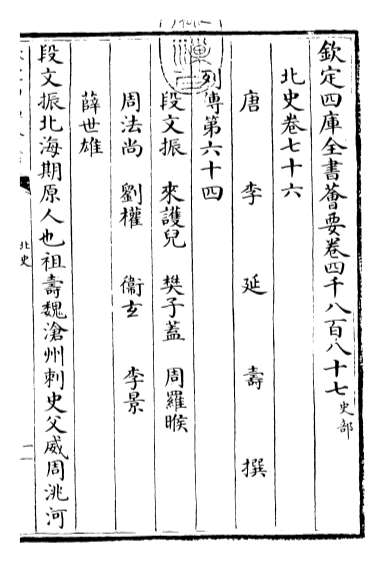 欽定四庫全書薈要卷四千八百八十七史部
北史卷七十六
唐 李 延 壽 撰
列傳第六十四
段文振 來護兒 樊子蓋 周羅睺
周法尚 劉權 衞玄 李景
薛世雄
段文振北海期原人也祖壽魏滄州刺史父威周洮河
北史